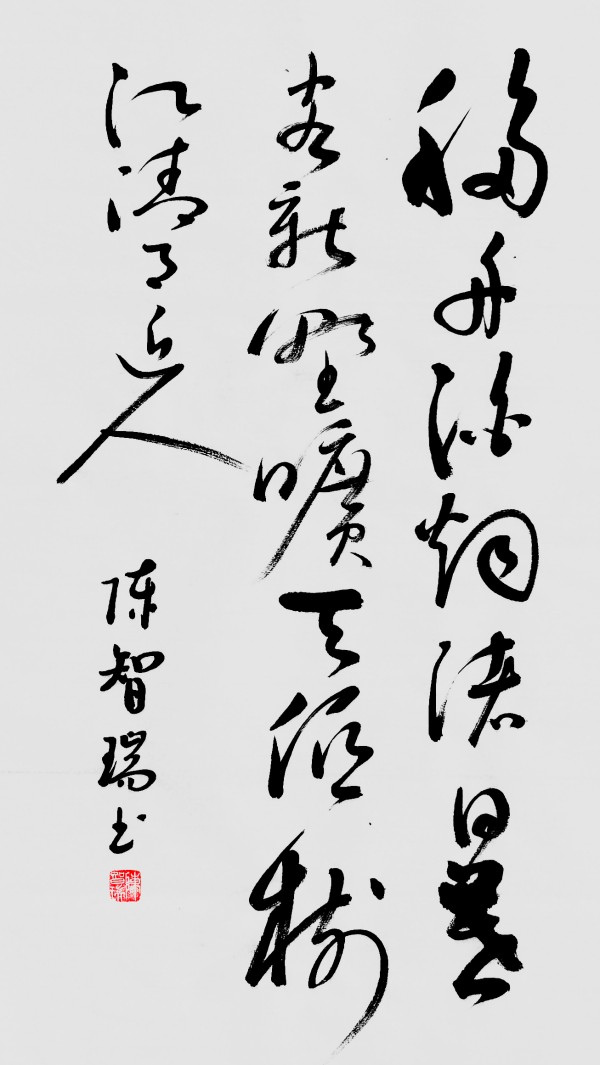 移舟泊烟渚日暮
客新野曠天低樹
江清月近人
陳智瑞书